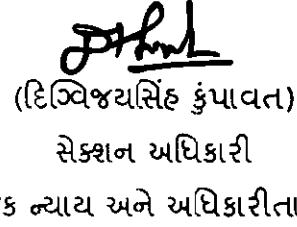 (દિગ્વિજયસિંહ કુંપાવત)
સેક્શન અધિકારી
ન્યાય અને અધિકારીતા